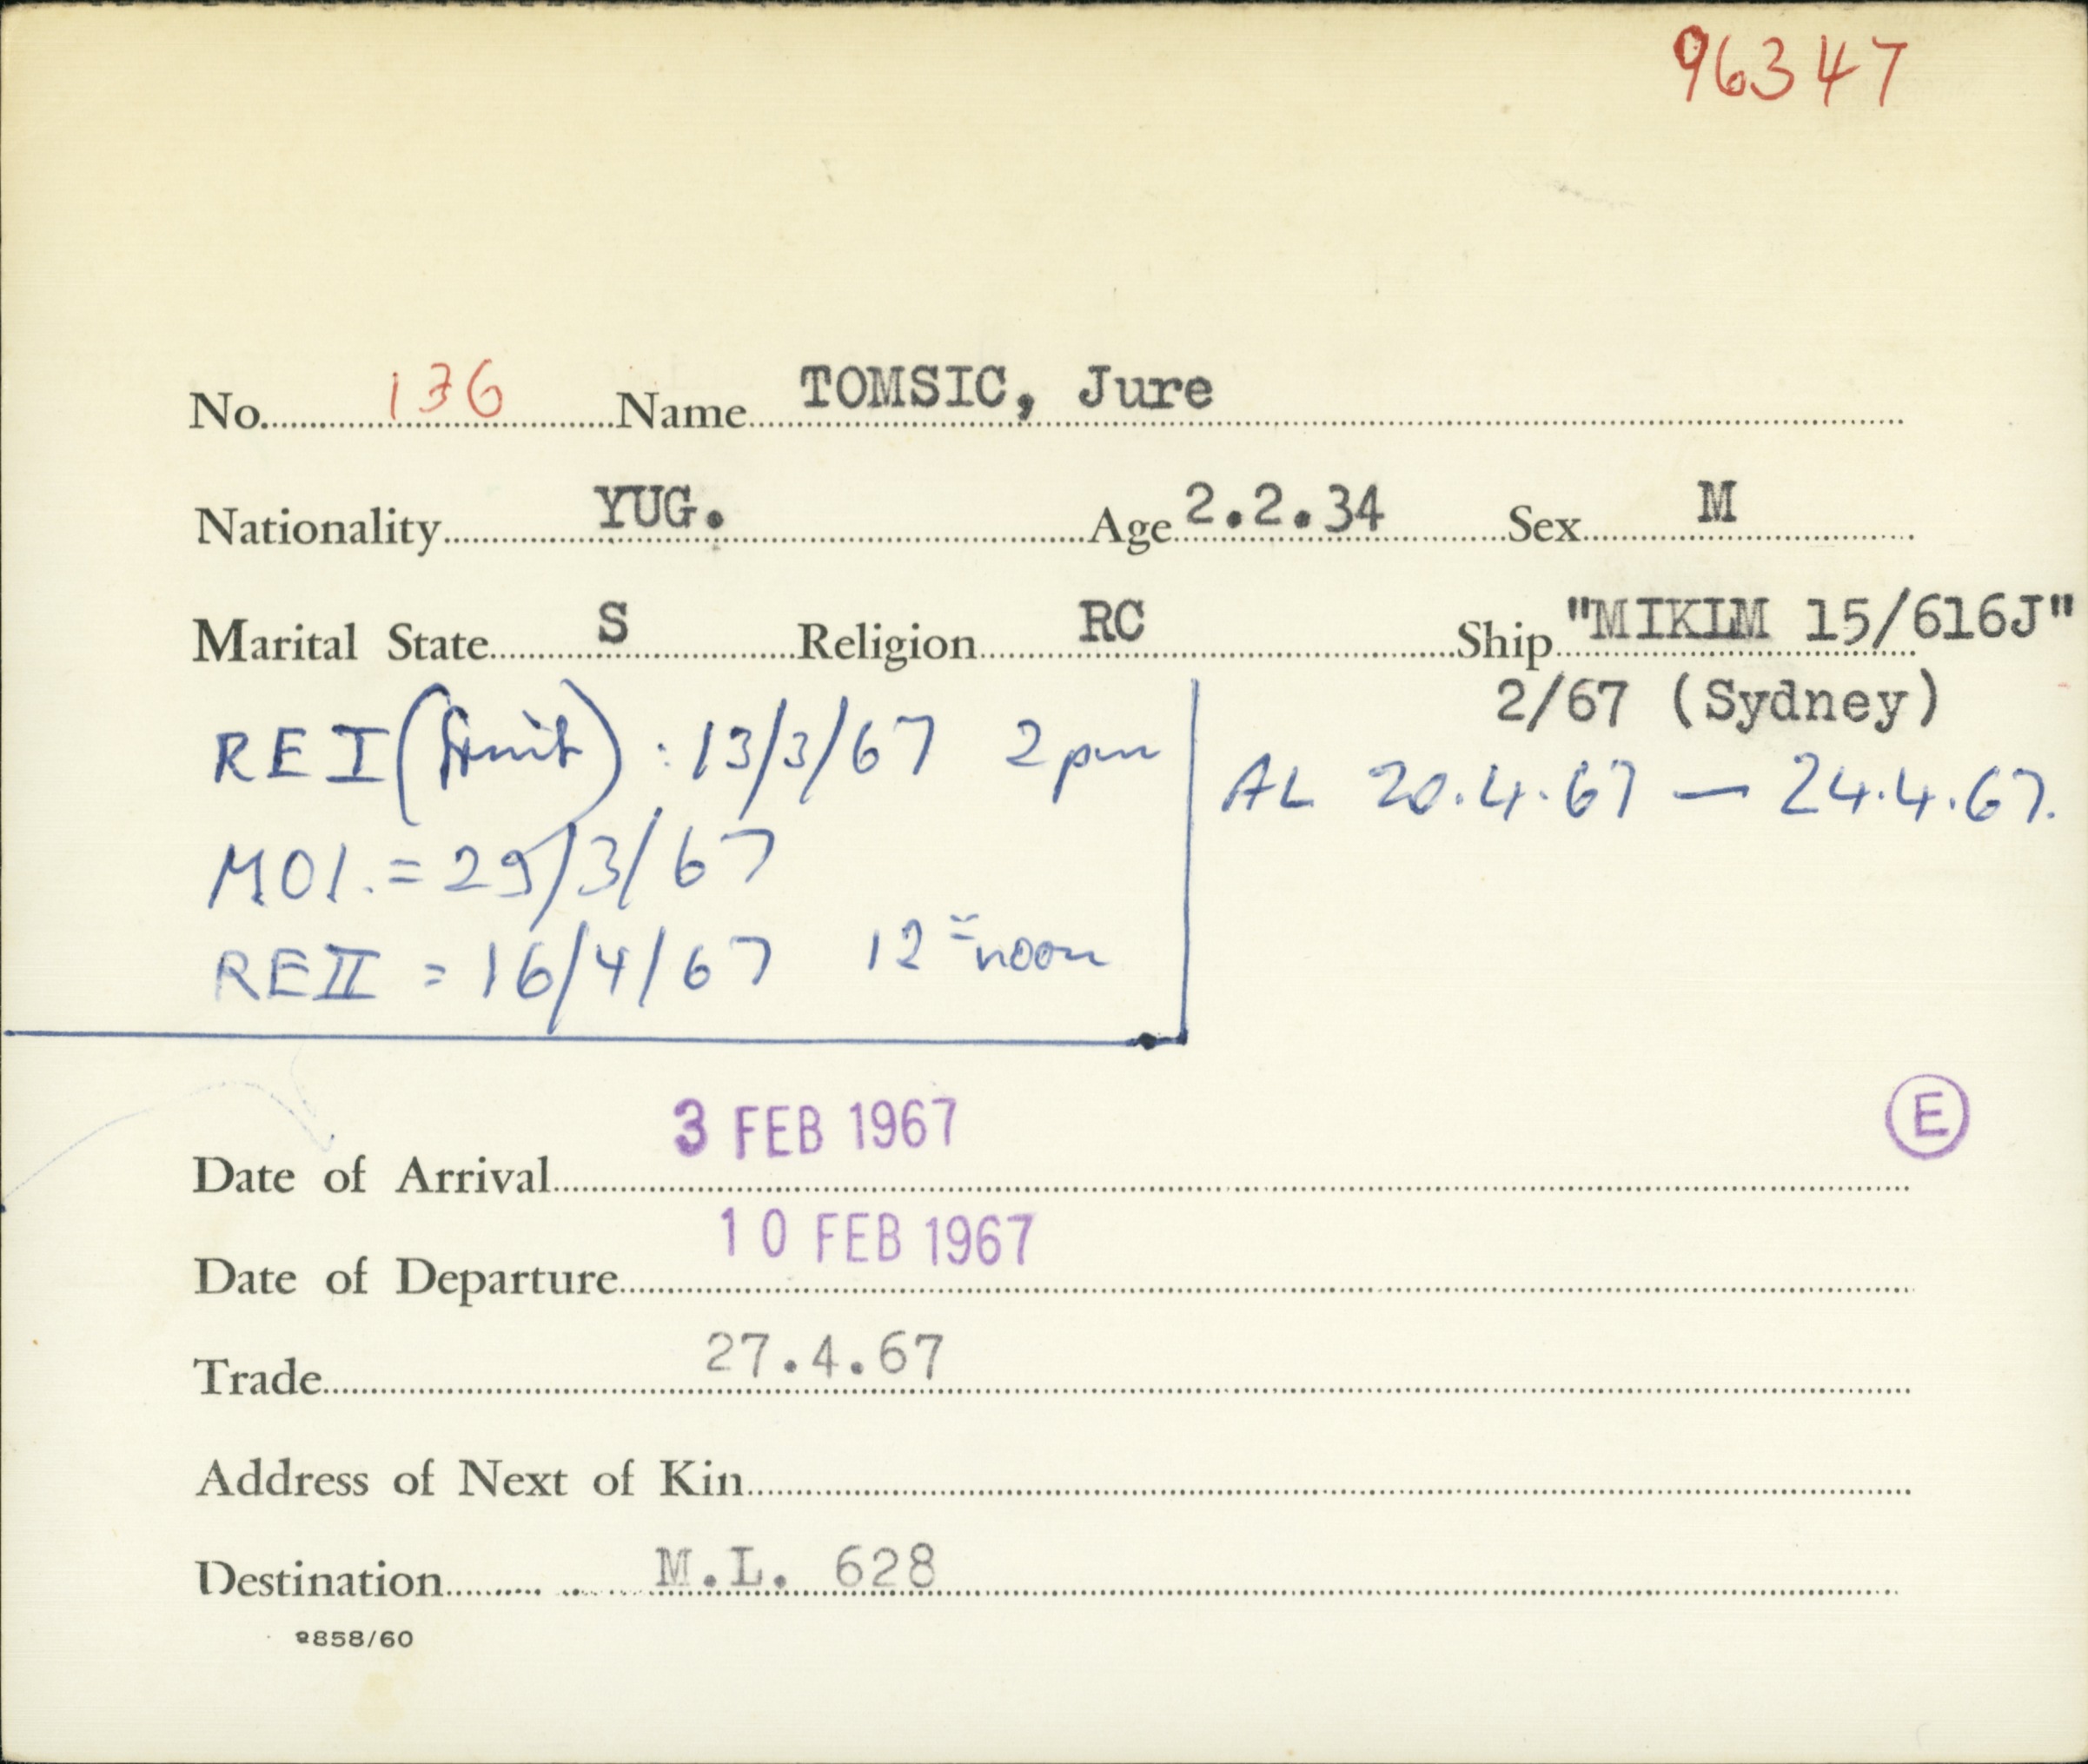 96347
No. 136 Name TOMSIC, Jure
Nationality YUG. Age 2.2.34 Sex M
Marital State S Religion RC Ship "MIKIM 15/616J"
2/67 (Sydney)
RE I ( ) : 13/3/67 2 pm
AL 20.4.67 — 24.4.67.
MOI. = 29/3/67
RE II = 16/4/67 12 = noon
E
Date of Arrival 3 FEB 1967
Date of Departure 10 FEB 1967
Trade 27.4.67
Address of Next of Kin
Destination M.L. 628
2858/60